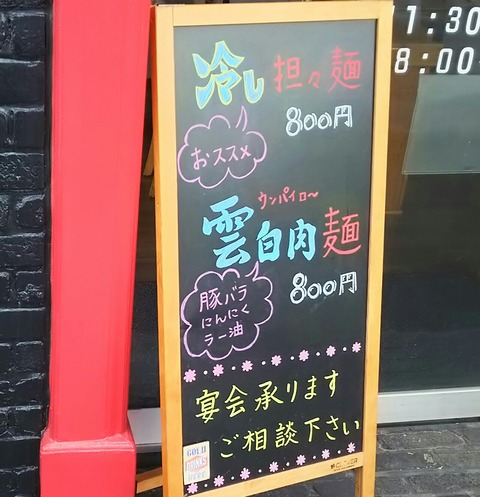 11:30
8:00
冷し担々麺
800円
おススメ
ウンパイロ〜
雲白肉麺
800円
豚バラ
にんにく
ラー油
宴会承ります
ご相談下さい
GOLD